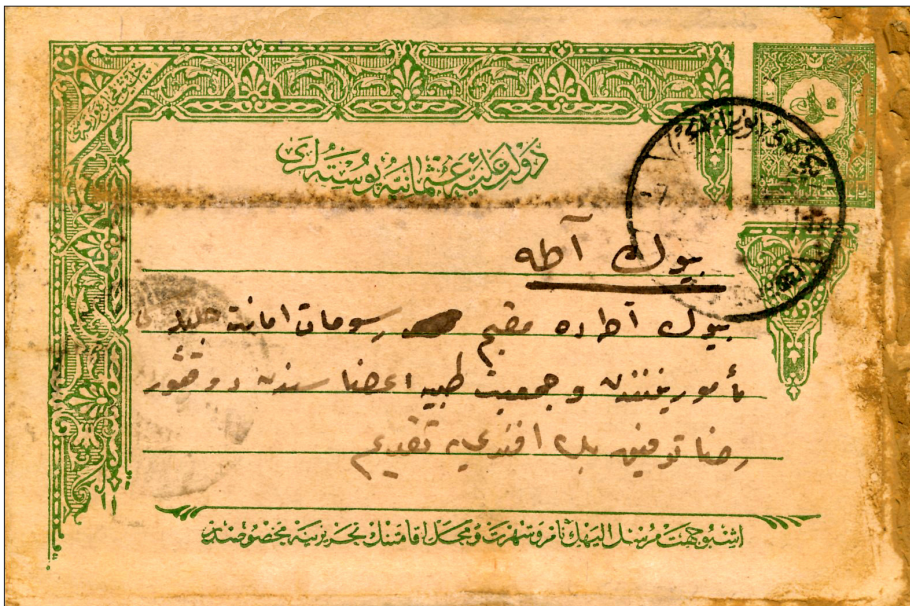 دولت علیهٔ عثمانیه پوسته‌لری
بیوك آطه
بیوك آطه‌ده مقیم رسومات امانت جلیله
مأموریندن و جمعیت طبیه اعضاسندن دوقتور
رضا توفیق بك افندی‌یه تقدیم
اشبو جهت مرسل الیهك نام و شهرت و محل اقامتنك تحریرینه مخصوصدر